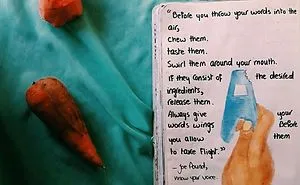 "Before you throw your words into the
air,
Chew them.
taste them.
Swirl them around your mouth.
If they consist of the desired
ingredients,
release them.
Always give your
words wings Before
you allow them
to take flight."
- be found,
know your voice.